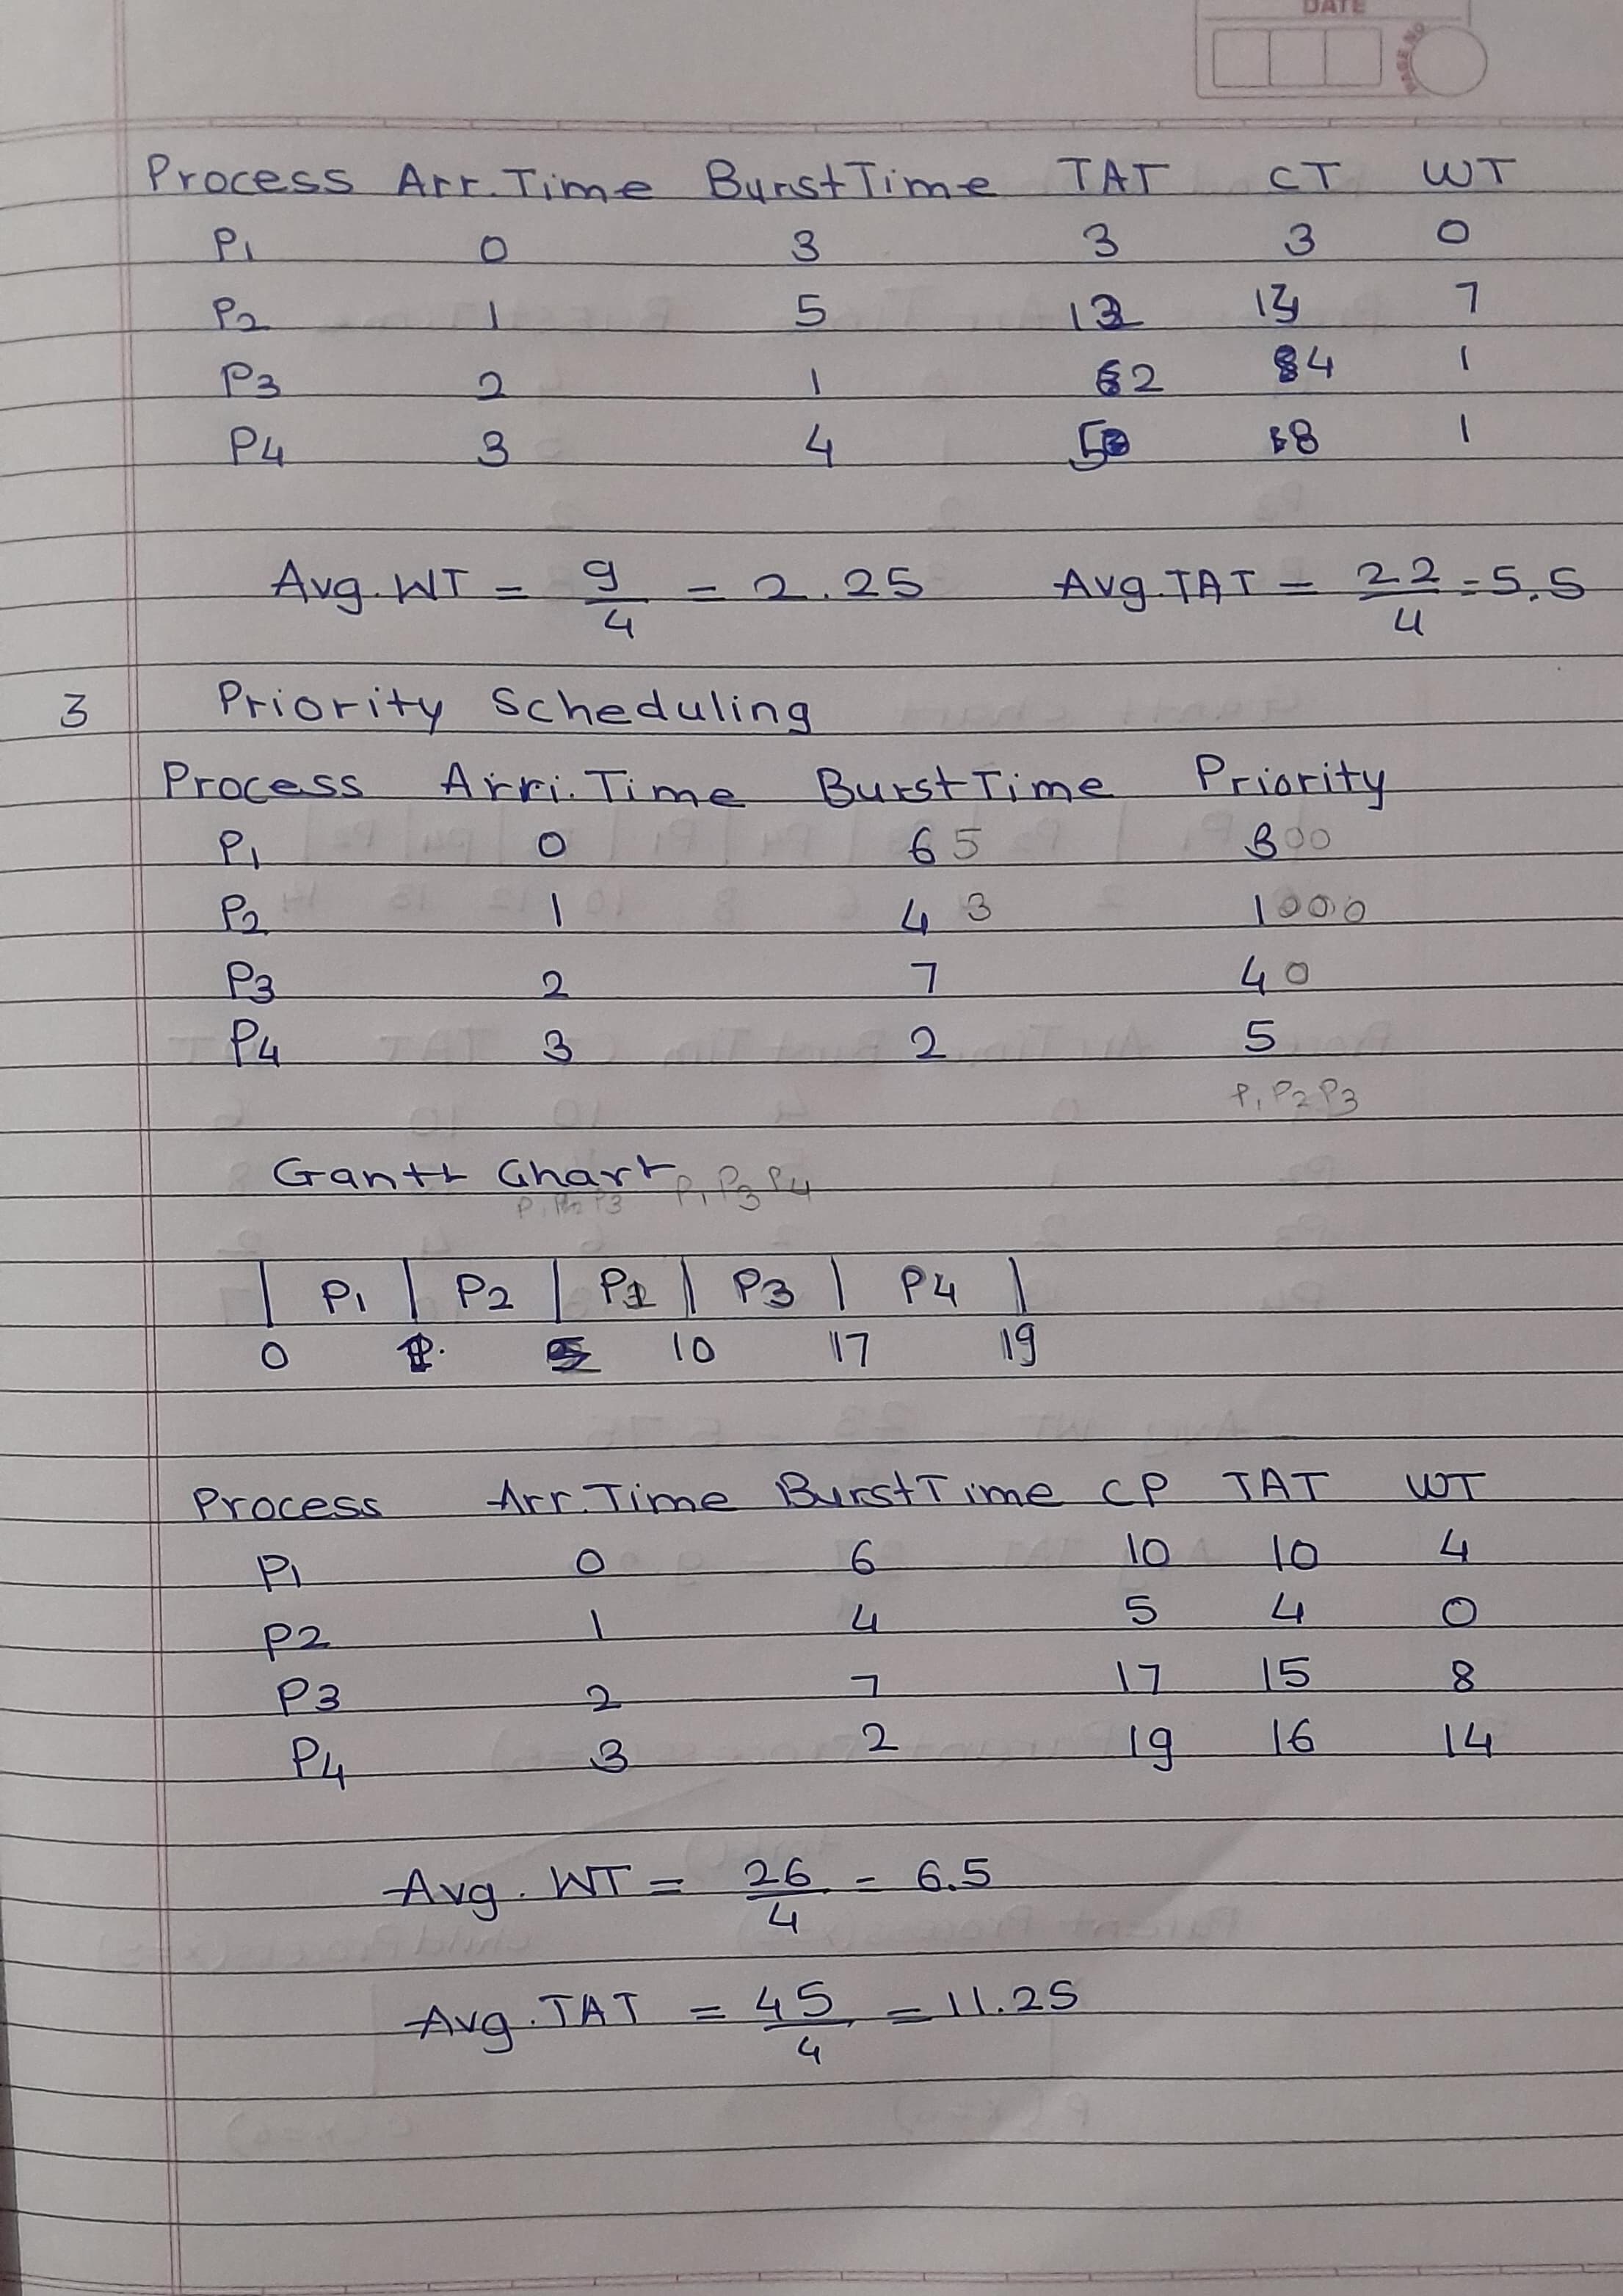 DATE
PAGE NO
Process Arr. Time Burst Time TAT CT WT
P1 0 3 3 3 0
P2 1 5 12 13 7
P3 2 1 2 4 1
P4 3 4 5 8 1
Avg. WT = 9/4 = 2.25 Avg. TAT = 22/4 = 5.5
3 Priority Scheduling
Process Arri. Time Burst Time Priority
P1 0 6 5 3 0 0
P2 1 4 3 1 0 0 0
P3 2 7 4 0
P4 3 2 5
P1 P2 P3
Gantt Chart P1 P3 P4
P1 P2 P3
P1 P2 P1 P3 P4
0 1 5 10 17 19
Process Arr. Time Burst Time CP TAT WT
P1 0 6 10 10 4
P2 1 4 5 4 0
P3 2 7 17 15 8
P4 3 2 19 16 14
Avg. WT = 26/4 = 6.5
Avg. TAT = 45/4 = 11.25